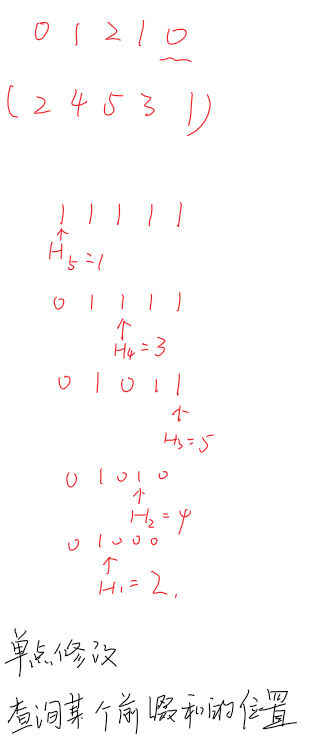 0 1 2 1 0
(2 4 5 3 1)
1 1 1 1 1
↑
H₅=1
0 1 1 1 1
↑
H₄=3
0 1 0 1 1
↑
H₃=5
0 1 0 1 0
↑
H₂=4
0 1 0 0 0
↑
H₁=2.
单点修改
查询某个前缀和的位置